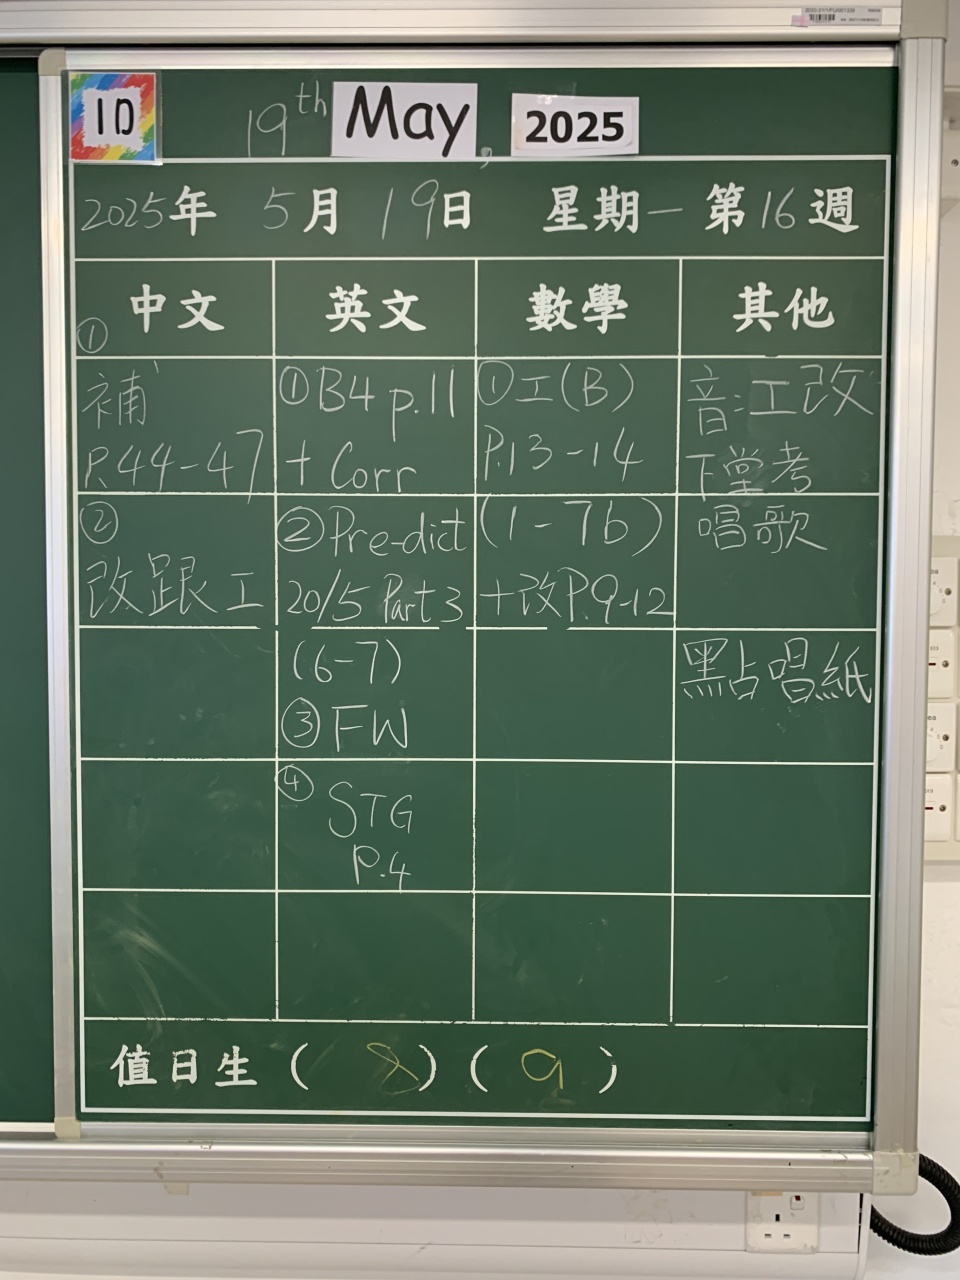 1D
19th May, 2025
2025年 5月 19日 星期一 第16週
中文 英文 數學 其他
①
補
P.44-47
②
改跟工
①B4 p.11
+ Corr
②Pre-dict
20/5 Part 3
(6-7)
③FW
④
STG
P.4
①工(B)
P.13-14
(1-7b)
+改P.9-12
音:工改
下堂考
唱歌
點唱紙
值日生 ( 8 ) ( 9 )